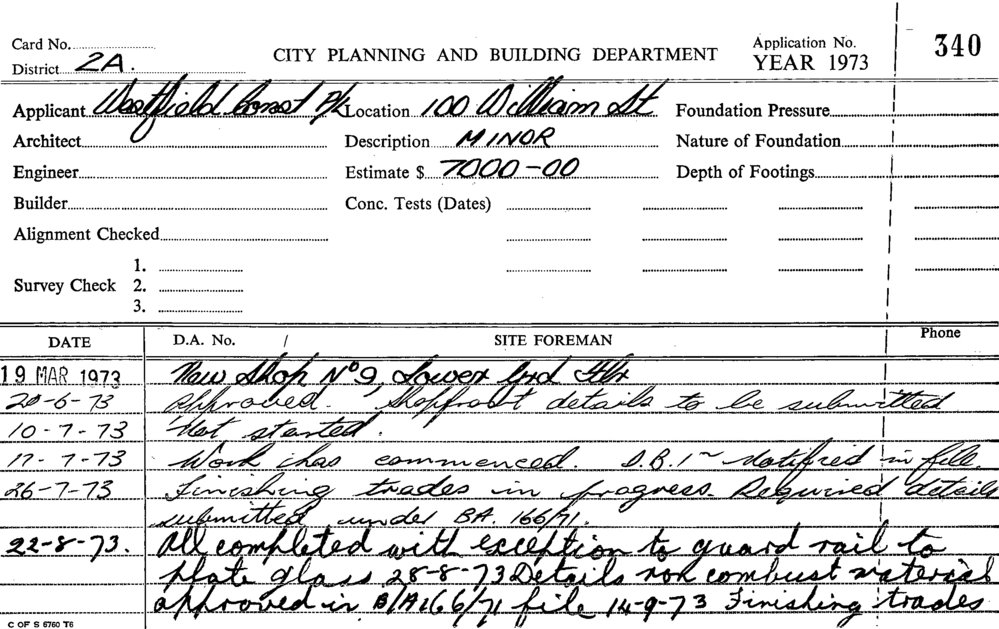 Card No.
District 2A.
CITY PLANNING AND BUILDING DEPARTMENT
Application No.
YEAR 1973
340
Applicant Westfield Const P/L Location 100 William St Foundation Pressure
Architect Description MINOR Nature of Foundation
Engineer Estimate $ 7000-00 Depth of Footings
Builder Conc. Tests (Dates)
Alignment Checked
Survey Check 1.
2.
3.
DATE D.A. No. / SITE FOREMAN Phone
19 MAR 1973 New Shop No 9, Lower Grd Flr
20-6-73 Approved. Shopfront details to be submitted
10-7-73 Not started.
17-7-73 Work has commenced. Notified in file.
26-7-73 Finishing trades in progress. Required details
submitted under BA. 166/71.
22-8-73. All completed with exception to guard rail to
plate glass 28-8-73 Details non combust material
approved in B/A 166/71 file 14-9-73 Finishing trades
C OF S 5760 T6